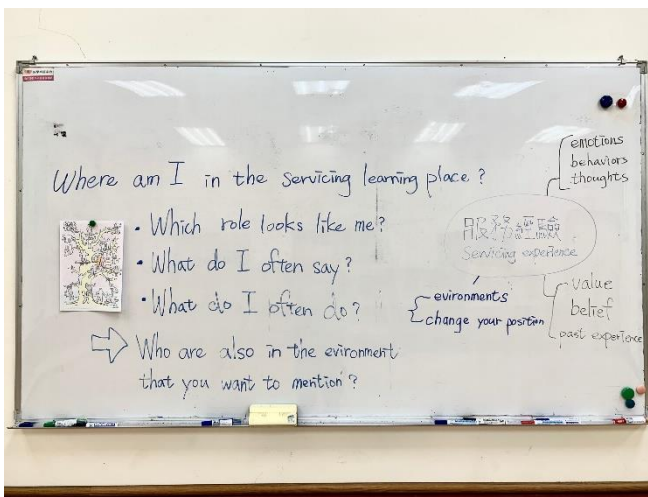 Where am I in the servicing learning place?
• Which role looks like me?
• What do I often say?
• What do I often do?
Who are also in the evironment
that you want to mention?
emotions
behaviors
thoughts
服務經驗
Servicing experience
evironments
change your position
value
belief
past experience